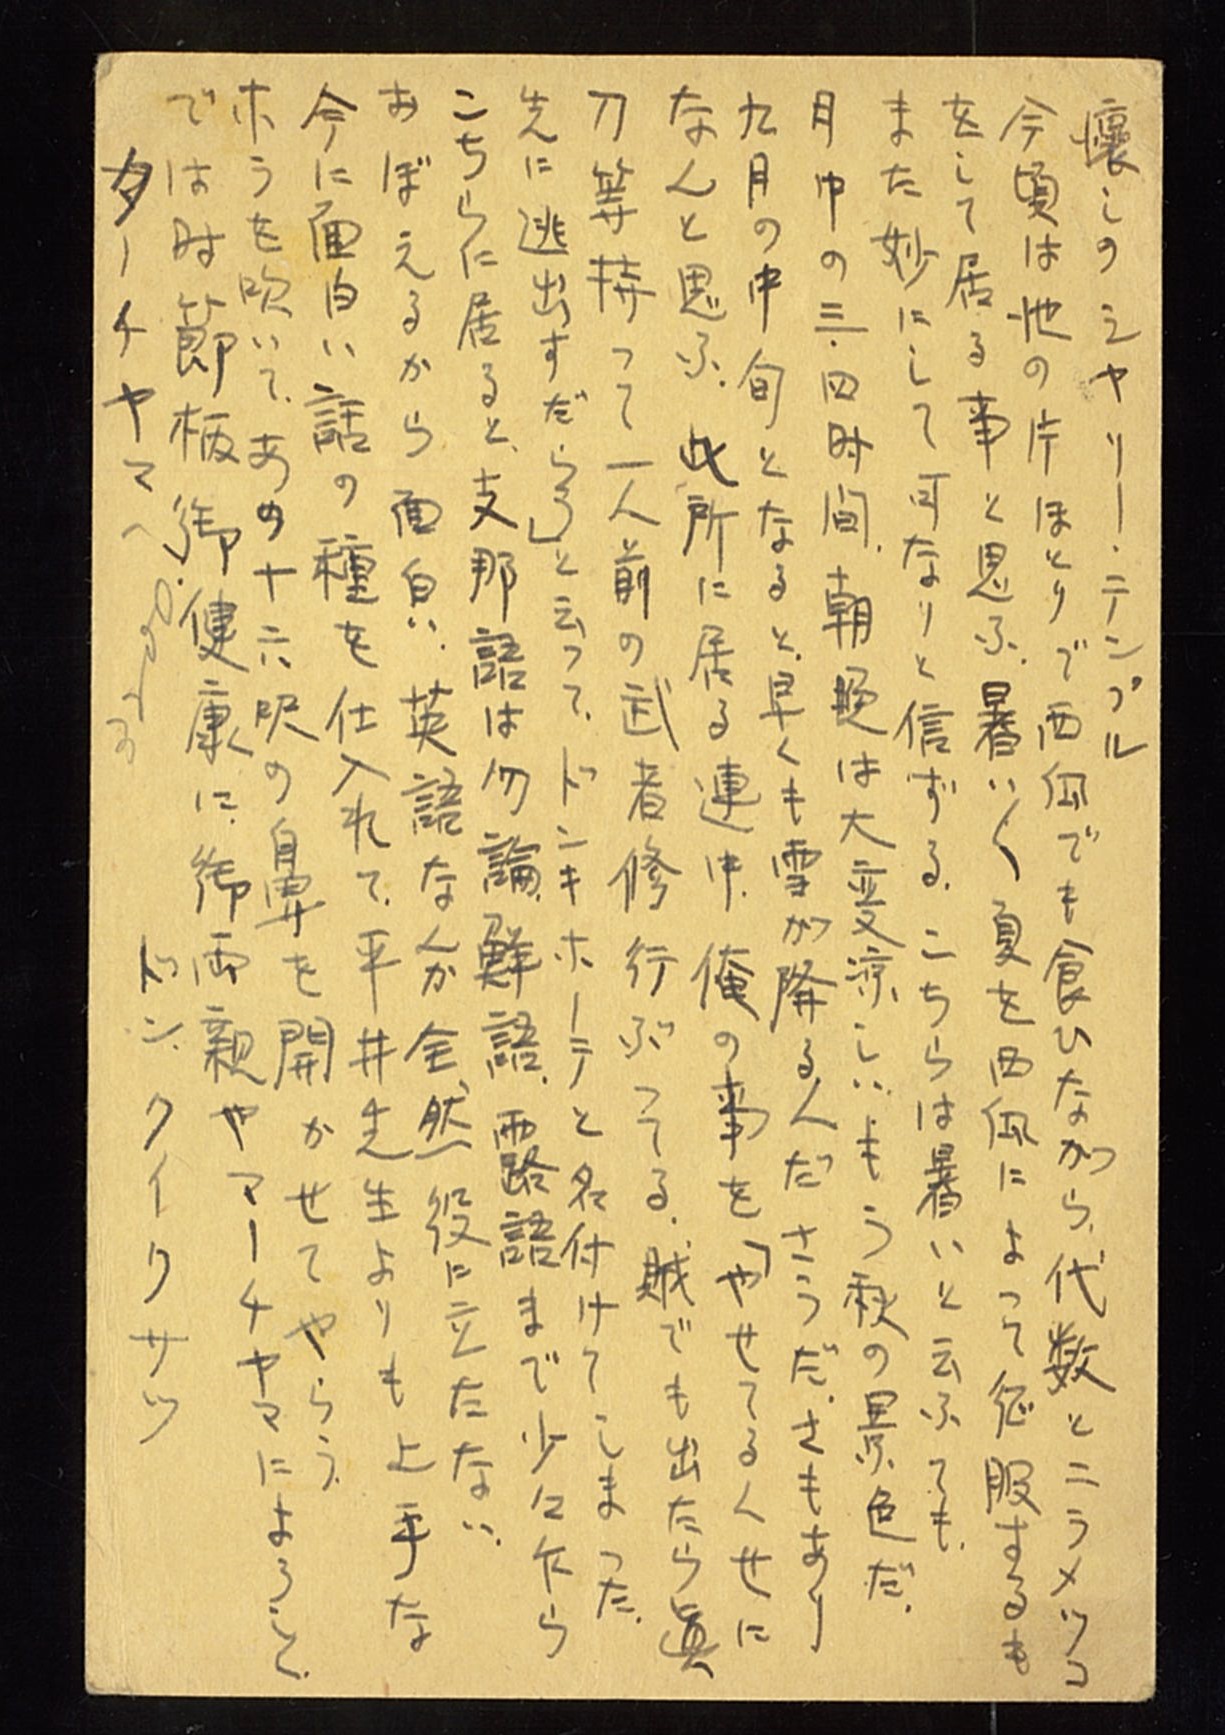 懐しのシャリー・テンプル
今頃は池の片ほとりで西瓜でも食ひながら、代数とニラメッコ
をして居る事と思ふ、暑い〱夏を西瓜によって征服するも
また妙にして可なりと信ずる、こちらは暑いと云ふても、
月中の三、四時間、朝晩は大変涼しい、もう秋の景色だ、
九月の中旬となると、早くも雪が降るんださうだ、さもあり
なんと思ふ、此所に居る連中、俺の事を「やせてるくせに
刀等持って一人前の武者修行ぶってる、賊でも出たら眞
先に逃出すだらう」と云って、ドンキホーテと名付けてしまった、
こちらに居ると、支那語は勿論、鮮語、露語まで少々なら
おぼえるから面白い、英語なんか全然役に立たない、
今に面白い話の種を仕入れて、平井先生よりも上手な
ホラを吹いて、あの十六の鼻を開かせてやらう、
では時節柄御健康に、御両親やマーチャマによろしく、
ターチャマへ
ドン、クイクサツ